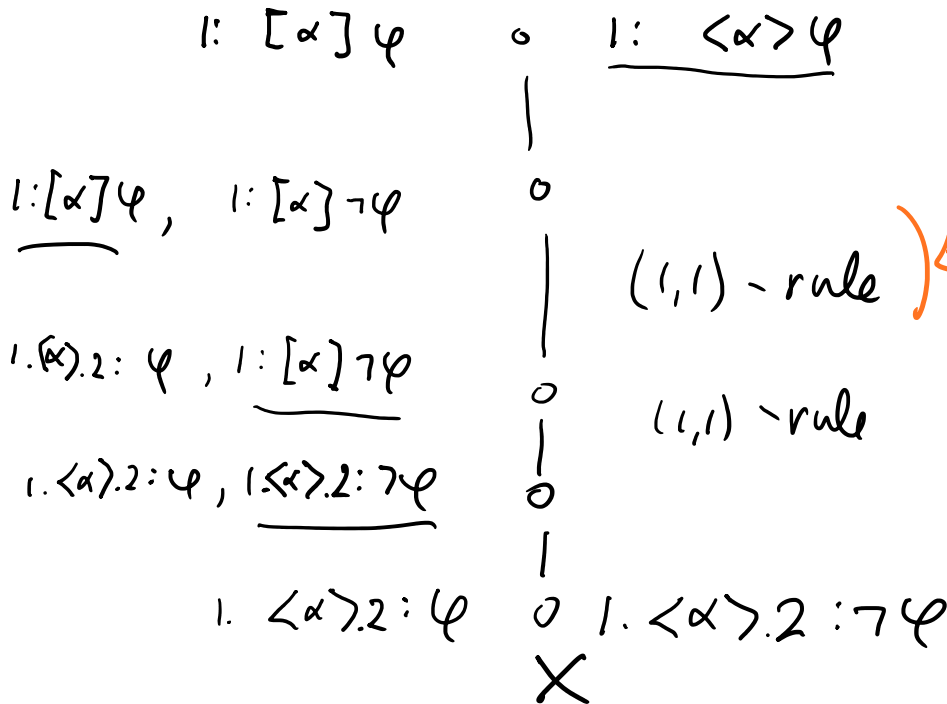 1: [α] φ o 1: <α> φ
1:[α] φ , 1: [α] ¬φ o
(1,1) - rule
1.<α>.2: φ , 1: [α] ¬φ o
(1,1) - rule
1. <α>.2: φ , 1.<α>.2: ¬φ o
1. <α>.2 : φ o 1. <α>.2 : ¬φ
X